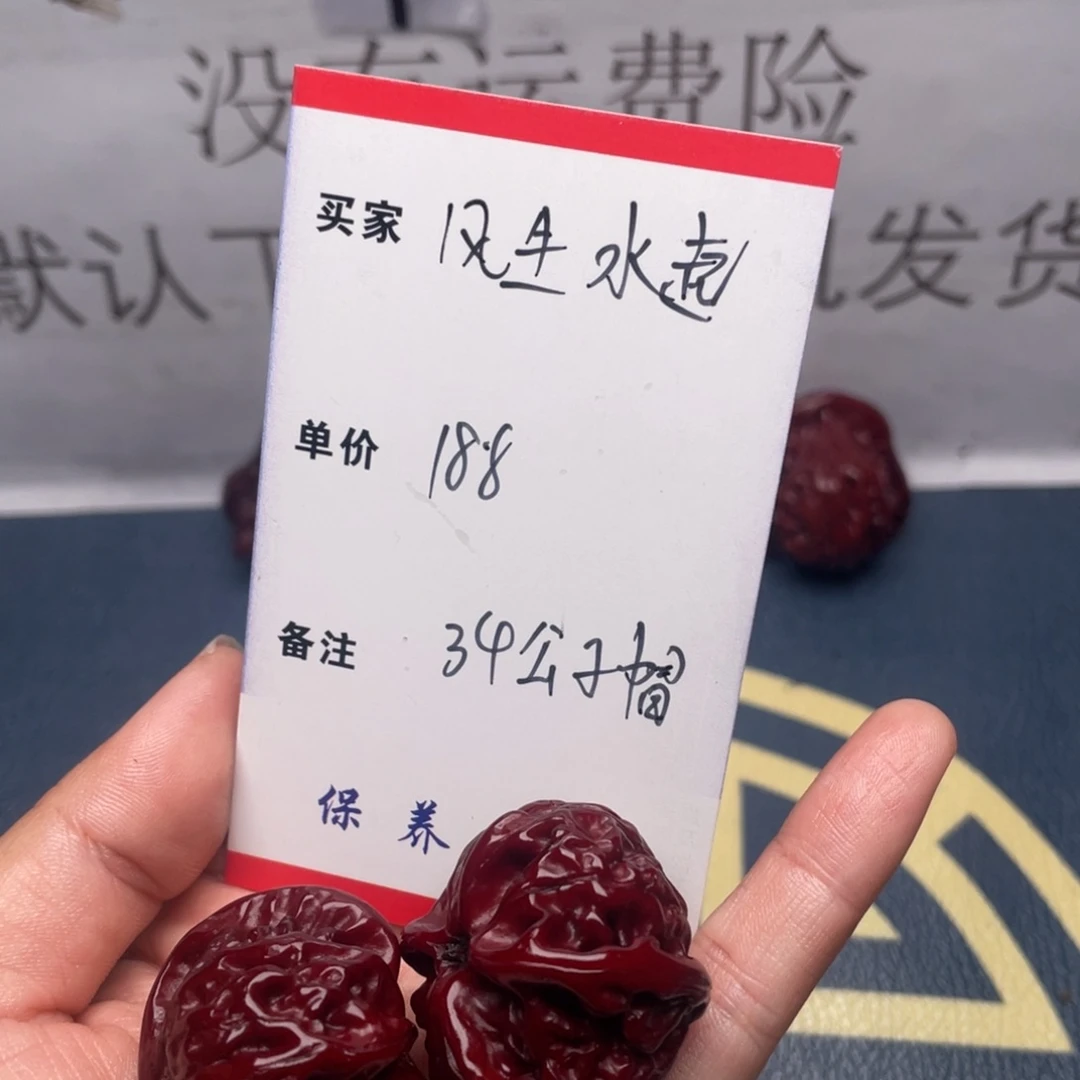 没有运费险
默认
发货
买家 风生水起
单价 188
备注 34公子帽
保养